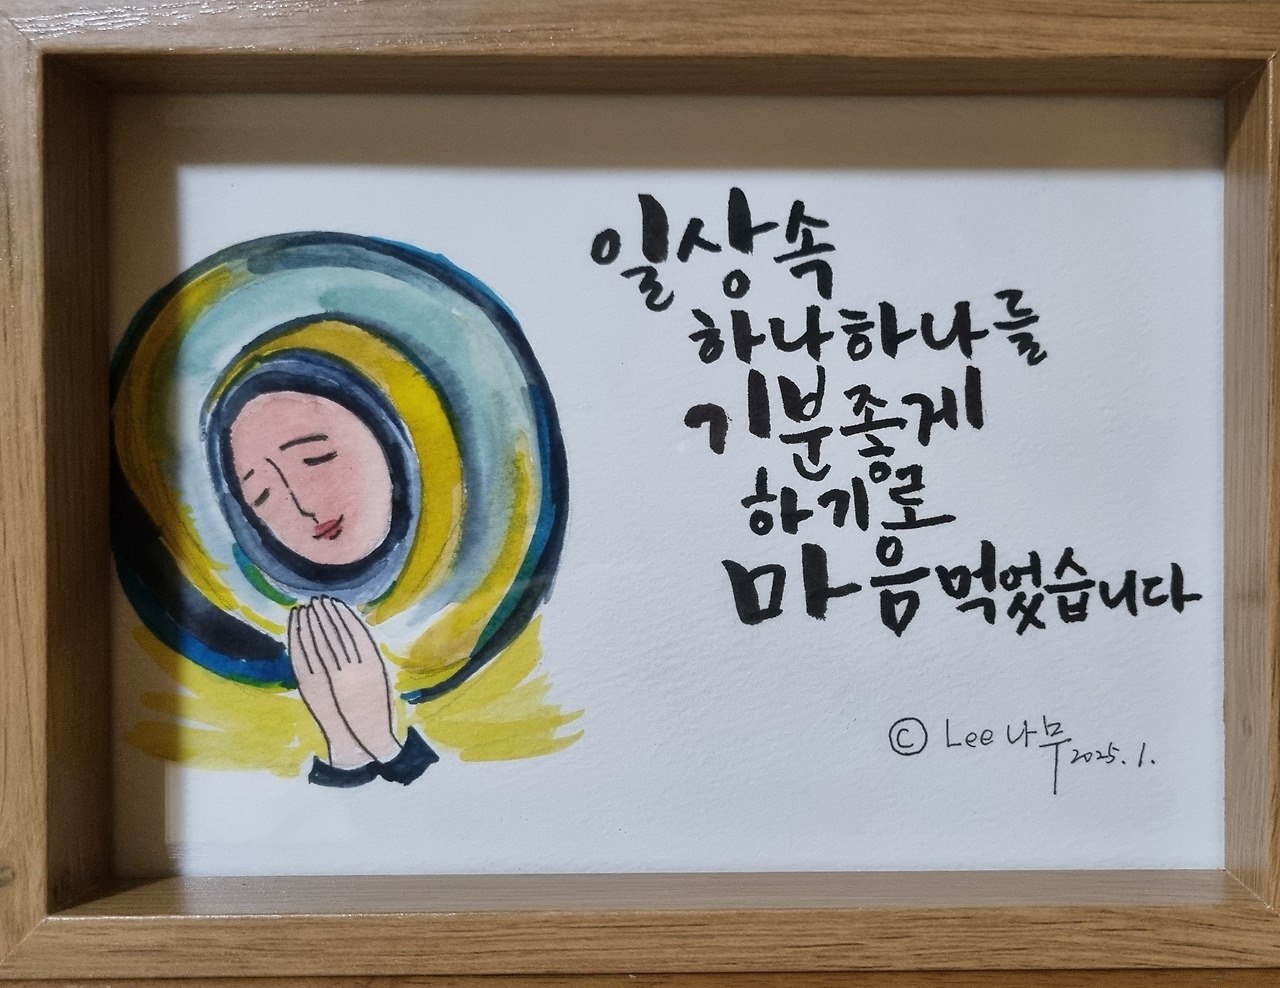 일상속
하나하나를
기분좋게
하기로
마음먹었습니다
© Lee나무 2025.1.